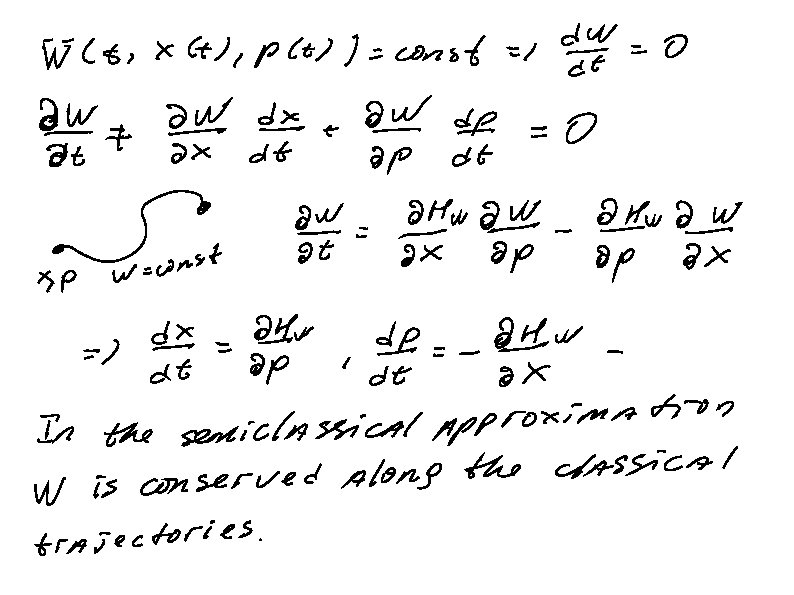 W(t, x(t), p(t)) = const => dW/dt = 0
∂W/∂t + ∂W/∂x dx/dt + ∂W/∂p dp/dt = 0
∂W/∂t = ∂H_W/∂x ∂W/∂p - ∂H_W/∂p ∂W/∂x
x, p W=const
=> dx/dt = ∂H_W/∂p , dp/dt = - ∂H_W/∂x -
In the semiclassical approximation
W is conserved along the classical
trajectories.